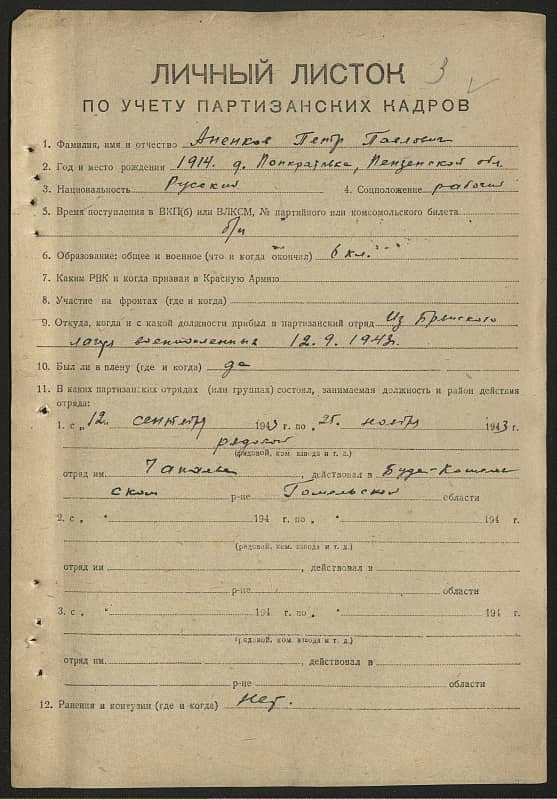 3
ЛИЧНЫЙ ЛИСТОК
ПО УЧЕТУ ПАРТИЗАНСКИХ КАДРОВ
1. Фамилия, имя и отчество Аненков Петр Павлович
2. Год и место рождения 1914. д. Панкратовка, Пензенской обл.
3. Национальность Русский 4. Соцположение рабочий
5. Время поступления в ВКП(б) или ВЛКСМ, № партийного или комсомольского билета
б/п
6. Образование: общее и военное (что и когда окончил) 6 кл.
7. Каким РВК и когда призван в Красную Армию
8. Участие на фронтах (где и когда)
9. Откуда, когда и с какой должности прибыл в партизанский отряд Из
лагеря военнопленных 12.9.1943.
10. Был ли в плену (где и когда) да
11. В каких партизанских отрядах (или группах) состоял, занимаемая должность и район действия
отряда:
1. с „ 12. сентября 1943 г. по „ 25. ноября 1943 г.
рядовой
(рядовой, ком. взвода и т. д.)
отряд им. Чапаева, действовал в Буда-Кошелев
ском р-не Гомельской области
2. с „ " 194 г. по „ " 194 г.
(рядовой, ком. взвода и т. д.)
отряд им , действовал в
р-не области
3. с „ " 194 г. по „ " 194 г.
(рядовой, ком. взвода и т. д.)
отряд им. , действовал в
р-не области
12. Ранения и контузии (где и когда) Нет.